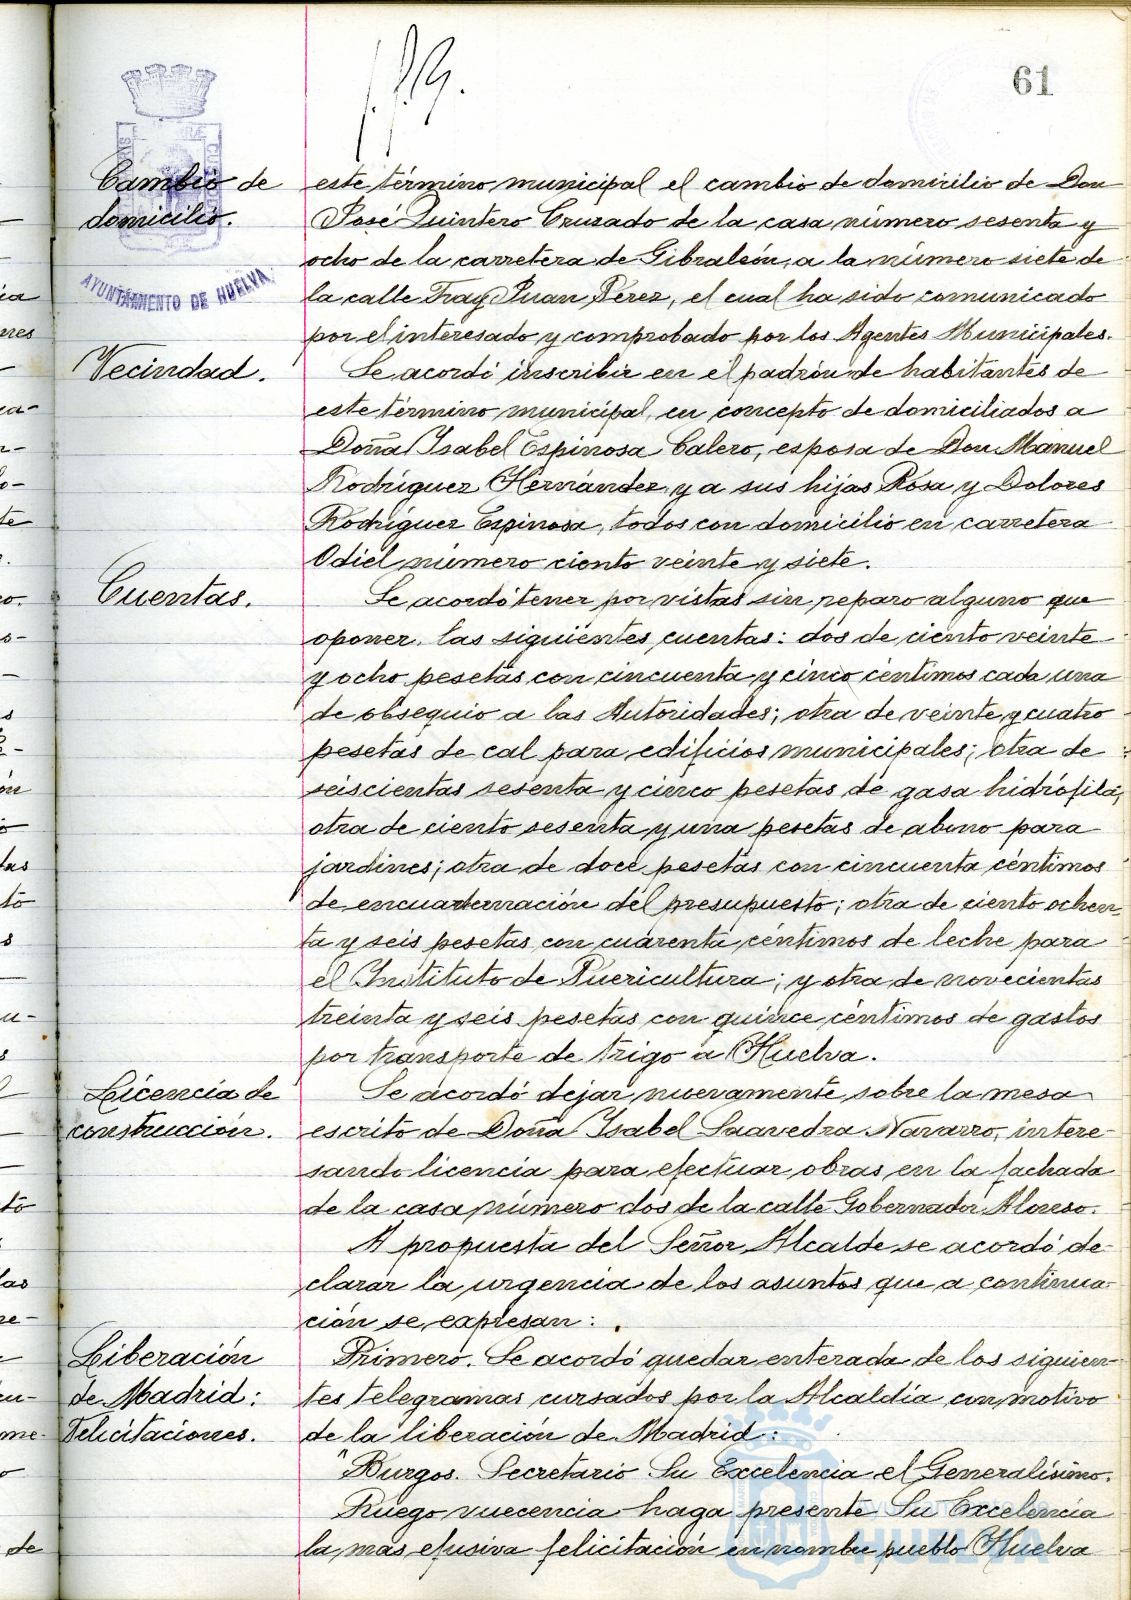 61
AYUNTAMIENTO DE HUELVA
Cambio de
domicilio.
este término municipal el cambio de domicilio de Don
José Quintero Cruzado de la casa número sesenta y
ocho de la carretera de Gibraleón, a la número siete de
la calle Fray Juan Pérez, el cual ha sido comunicado
por el interesado y comprobado por los Agentes Municipales.
Vecindad.
Se acordó inscribir en el padrón de habitantes de
este término municipal, en concepto de domiciliados a
Doña Isabel Espinosa Calero, esposa de Don Manuel
Rodríguez Hernández y a sus hijas Rosa y Dolores
Rodríguez Espinosa, todos con domicilio en carretera
Odiel número ciento veinte y siete.
Cuentas.
Se acordó tener por vistas sin reparo alguno que
oponer, las siguientes cuentas: dos de ciento veinte
y ocho pesetas con cincuenta y cinco céntimos cada una
de obsequio a las Autoridades; otra de veinte y cuatro
pesetas de cal para edificios municipales; otra de
seiscientas sesenta y cinco pesetas de gasa hidrófila;
otra de ciento sesenta y una pesetas de abono para
jardines; otra de doce pesetas con cincuenta céntimos
de encuadernación del presupuesto; otra de ciento ochen
ta y seis pesetas con cuarenta céntimos de leche para
el Instituto de Puericultura; y otra de novecientas
treinta y seis pesetas con quince céntimos de gastos
por transporte de trigo a Huelva.
Licencia de
construcción.
Se acordó dejar nuevamente sobre la mesa
escrito de Doña Isabel Saavedra Navarro, intere-
sando licencia para efectuar obras en la fachada
de la casa número dos de la calle Gobernador Alonso.
A propuesta del Señor Alcalde se acordó de-
clarar la urgencia de los asuntos que a continua-
ción se expresan:
Liberación
de Madrid:
Felicitaciones.
Primero. Se acordó quedar enterada de los siguien-
tes telegramas cursados por la Alcaldía con motivo
de la liberación de Madrid:
"Burgos. Secretario Su Excelencia el Generalísimo.
Ruego vuecencia haga presente Su Excelencia
la más efusiva felicitación en nombre pueblo Huelva
HUELVA